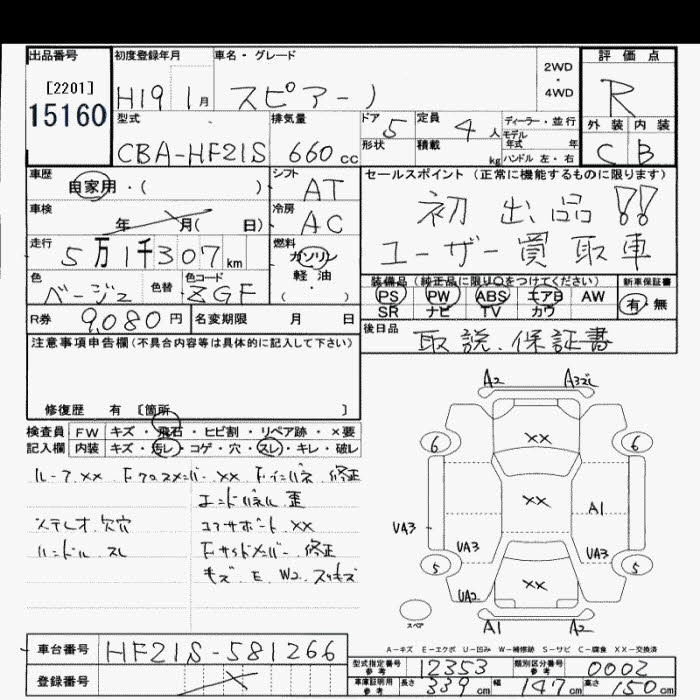 出品番号 初度登録年月 車名・グレード 評価点
[2201]
15160
H19 1月 スピアーノ
2WD
・
4WD
R
外装 内装
C B
型式 排気量 ドア 5 定員 4人 ディーラー・並行
モデル
年式 年
CBA-HF21S 660cc
形状 積載 kg ハンドル 左・右
車歴 シフト セールスポイント(正常に機能するものに限ります)
自家用・( ) AT
初出品!!
車検 冷房
年 月( 日) AC
ユーザー買取車
走行 燃料
5万1千307km ガソリン
軽・油
・
( )
色 色替 色コード
ベージュ ZGF
装備品(純正品に限り○をつけてください) 新車保証書
PS PW ABS エアB AW 有・無
SR ナビ TV カワ
R券 9,080円 名変期限 月 日
後日品 取説、保証書
注意事項申告欄(不具合内容等は具体的に記入して下さい)
修復歴 有 [箇所 ]
検査員 FW キズ・飛石・ヒビ割・リペア跡・×要
記入欄 内装 キズ・汚レ・コゲ・穴・スレ・キレ・破レ
ルーフ.××  Fクロスメンバー.××  F.インパネ 修正
エンドパネル 歪
ステレオ.欠穴 コアサポート.××
ハンドル.スレ Fサイドメンバー 修正
キズ.E.W2.スリキズ
A2
6
××
6
××
A1
VA3
VA3
VA3
5
5
VA2
××
スペア
A1
A2
A-キズ E-エクボ U-凹み W-補修跡 S-サビ C-腐食 XX-交換済
車台番号 HF21S-581266
登録番号
型式指定番号 参考 12353 類別区分番号 参考 0002
車庫証明用 参考 長さ 339cm 幅 147cm 高さ 150cm